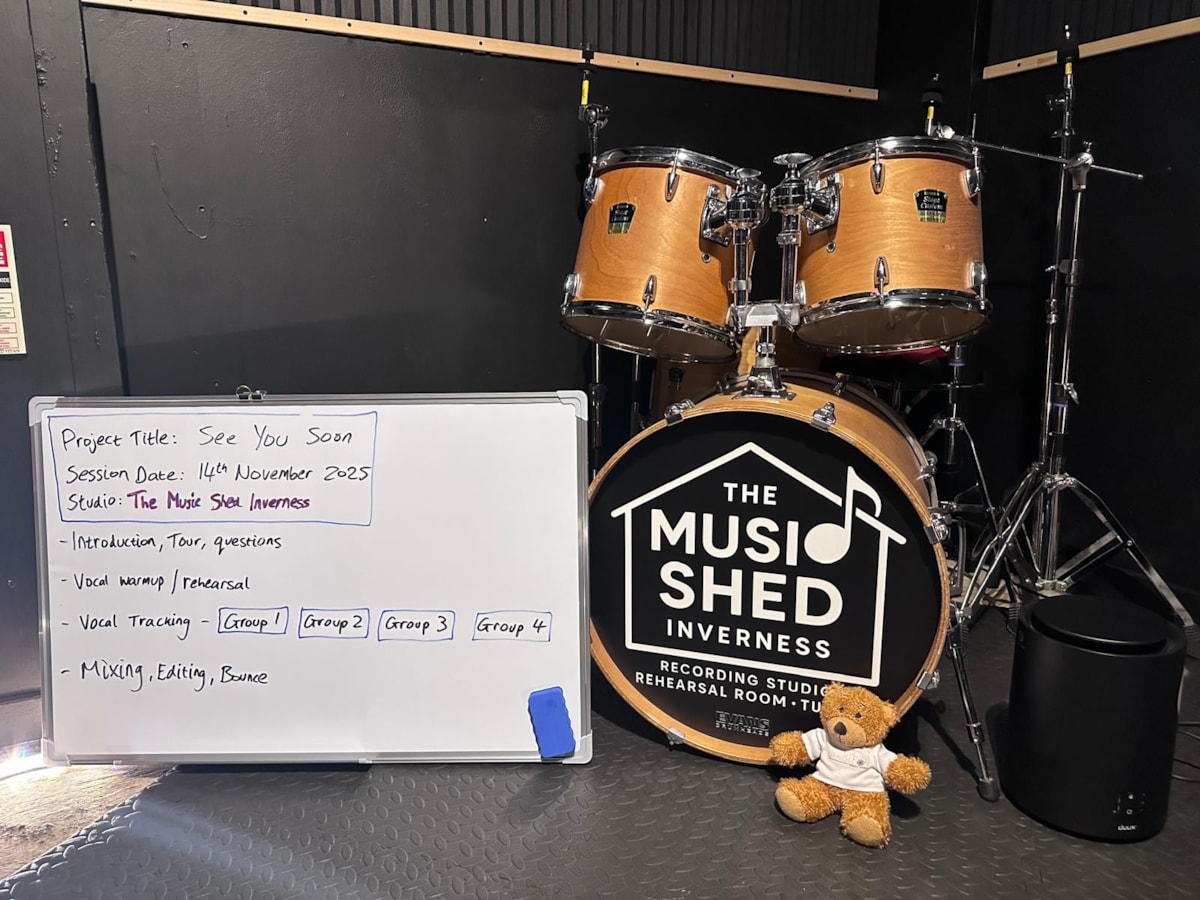 Project Title: See You Soon
Session Date: 14th November 2025
Studio: The Music Shed Inverness
- Introduction, Tour, questions
- Vocal warmup / rehearsal
- Vocal Tracking - Group 1 Group 2 Group 3 Group 4
- Mixing, Editing, Bounce
Stage Custom
THE
MUSIC
SHED
INVERNESS
RECORDING STUDIO
REHEARSAL ROOM • TU
EVANS
DRUMHEADS
duux